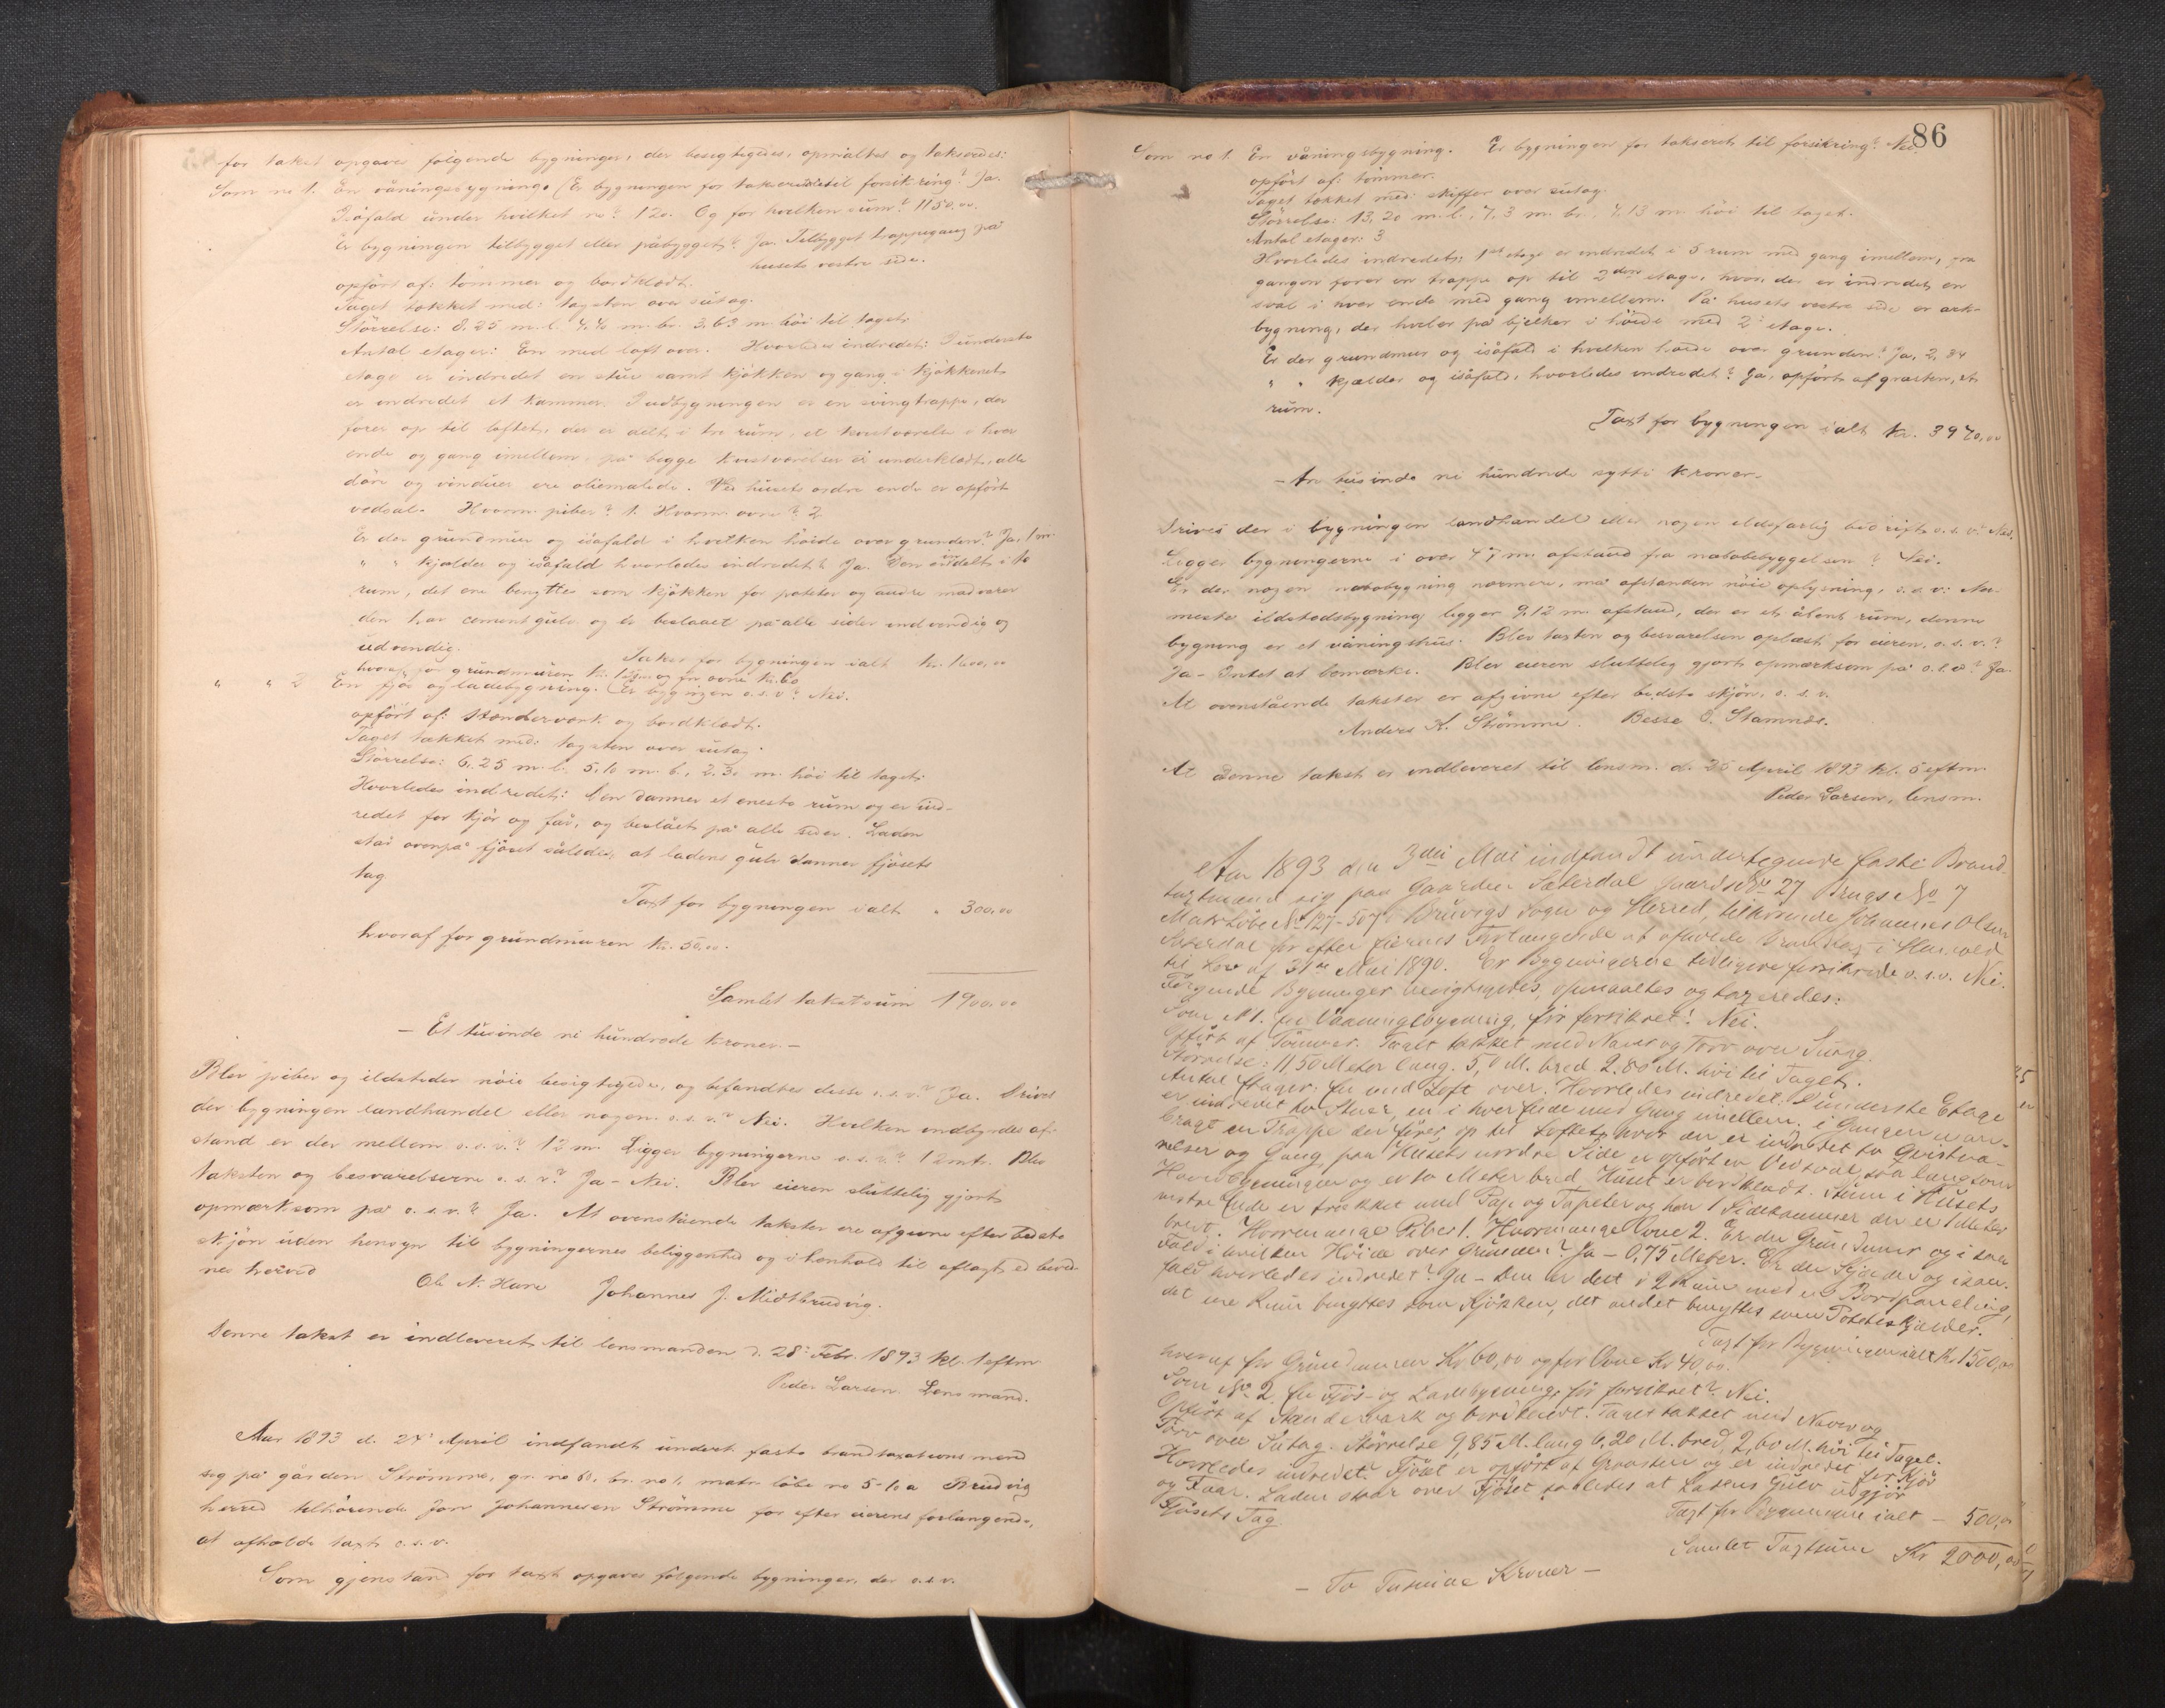 for takst opgaves følgende bygninger, der besigtigedes, opmåltes og takseredes:
Som no 1. En våningsbygning. Er bygningen før takseret til forsikring? Ja.
Isåfald under hvilket no? 120. Og for hvilken sum? 1150,00.
Er bygningen tilbygget eller påbygget? Ja. Tilbygget trappegang på
husets vestre side.
opført af: tømmer og bordklædt.
Taget tækket med: tagsten over sutag.
Størrelse: 8,25 m. l. 7,40 m. br. 3,63 m. høi til taget.
Antal etager: En med loft over. Hvorledes indredet: I underste
etage er indredet en stue samt kjøkken og gang i kjøkkenet
er indredet et kammer. I udbygningen er en svingtrappe, der
fører op til loftet, der er delt i tre rum, et kvistværelse i hver
ende og gang imellem, på begge kvistværelser er underklædt, alle
døre og vinduer ere oliemalede. Ved husets nordre ende er opført
vedsval. Hvorm. piber? 1. Hvorm. ovne? 2
Er der grundmur og isåfald i hvilken høide over grunden? Ja, 1 m.
" " kjælder og isåfald hvorledes indredet? Ja. Den er inddelt i to
rum, det ene benyttes som kjøkken for poteter og andre madvarer
den har cementgulv og er beslaaet på alle sider indvendig og
udvendig.
Takst for bygningen ialt kr. 1600,00
hvoraf for grundmuren kr. og for ovne kr. 60
" " 2 En fjøs og ladebygning. Er bygningen o.s.v? Nei.
opført af: Stænderværk og bordklædt.
Taget tækket med: tagsten over sutag.
Størrelse: 6,25 m. l. 5,10 m. b. 2,30 m. høi til taget.
Hvorledes indredet: Den danner et eneste rum og er ind-
redet for kjør og får, og beslået på alle sider. Laden
står ovenpå fjøset således, at ladens gulv danner fjøsets
tag
Taxt for bygningen ialt " 300,00
hvoraf for grundmuren kr. 50,00.
Samlet takstsum 1900,00
– Et tusinde ni hundrede kroner. –
Blev piber og ildsteder nøie besigtigede, og befandtes disse o.s.v.? Ja. Drives
der bygningen landhandel eller nogen o.s.v.? Nei. Hvilken indbyrdes af-
stand er der mellem o.s.v.? 12 m. Ligger bygningerne o.s.v.? 12 mtr. Blev
taksten og besvarelserne o.s.v? Ja – Nei. Blev eieren sluttelig gjort
opmærksom på o.s.v.? Ja. At ovenstående takster ere afgivne efter bedste
skjøn uden hensyn til bygningernes beliggenhed og i henhold til aflagt ed bevid-
nes herved
Ole N. Hare Johannes J. Midtbrudvig.
Denne takst er indleveret til lensmanden d. 28' Febr. 1893 kl. 1 eftm
Peder Larsen Lensmand.
Aar 1893 d. 24' April indfandt undert. faste brandtaxationsmænd
sig på gården Strømme, gr. no 60, br. no 1. matr. løbe no 5-10 a Brudvig
herred tilhørende Jon Johannesen Strømme for efter eierens forlangende,
at afholde taxt o.s.v.
Som gjenstand for taxt opgaves følgende bygninger, der o.s.v.
86
Som no 1. En våningsbygning. Er bygningen før takseret til forsikring? Nei.
opført af: tømmer.
Taget tækket med: skiffer over sutag.
Størrelse: 13,20 m. l., 7,3 m. br., 4,13 m. høi til taget.
Antal etager: 3
Hvorledes indredet: 1ste etage er indredet i 5 rum med gang imellem, fra
gangen fører en trappe op til 2den etage, hvor der er indredet en
sval i hver ende med gang imellem. På husets vestre side er ark-
bygning, der hviler på bjelker i høide med 2' etage.
Er der grundmur og isåfald i hvilken høide over grunden? Ja, 2,34
" " kjælder og isåfald, hvorledes indredet? Ja, opført af gråsten, et
rum.
Taxt for bygningen ialt kr. 3970,00
– Tre tusinde ni hundrede sytti kroner. –
Drives der i bygningen landhandel eller nogen ildsfarlig bedrift o.s.v? Nei.
Ligger bygningerne i over 47 m. afstand fra nabobebyggelsen? Nei.
Er der nogen nabobygning nærmere, må afstanden nøie oplysning, o.s.v: Nær-
meste ildstedsbygning ligger 9,12 m. afstand, der er et åbent rum, denne
bygning er et våningshus. Blev taxten og besvarelsen oplæst for eieren. o.s.v.?
Ja – Intet at bemærke. Blev eieren sluttelig gjort opmærksom på o.s.v? Ja.
At ovenstående takster er afgivne efter bedste skjøn, o.s.v.
Anders K. Strømme. Besse O. Stamnes.
At denne takst er indleveret til lensm. d. 25 April 1893 kl. 5 eftm.
Peder Larsen, lensm.
Aar 1893 den 3die Mai indfandt undertegnede faste Brand-
taxtmænd sig paa Gaarden Sæterdal Gaards No 27 Brugs No 7
Matr Løbe No 127-507 i Brüvigs Sogn og Herred, tilhørende Johannes Olsen
Sæterdal for efter Eierens Forlangende at afholde Brandtaxt i Henhold
til Lov af 31te Mai 1890. Er Bygningerne tidligere forsikrede o.s.v. Nei.
Følgende Bygninger besigtigedes, opmaaltes og taxeredes:
Som No 1. En Vaaningsbygning, før forsikret? Nei.
Opført af Tømmer. Taget tækket med Næver og Torv over Sutag.
Størrelse: 11,50 Meter lang. 5,0 M. bred 2.80 M. høi til Taget.
Antal Etager: En med Loft over. Hvorledes indredet: I underste Etage
er indredet to Stuer, en i hver Ende med Gang imellem. i Gangen er an-
bragt en Trappe der fører op til Loftet, hvor der er indredet to Qvistvæ-
relser og Gang, paa Husets nordre Side er opført en Vedsval saa lang som
Hovedbygningen og er to Meter bred. Huset er bordklædt. Stuen i Husets
vestre Ende er trukket med Pap og Tapeter og har 1 Sidekammer der er 1 Meter
bredt. Hvormange Piber 1. Hvormange Ovne 2. Er der Grundmur og i saa
Fald i hvilken Høide over Grunden? Ja – 0,75 Meter. Er der Kjælder og i saa-
fald hvorledes indredet? Ja – Den er delt i 2 Rum med en Bordpaneling,
det ene Rum benyttes som Kjøkken, det andet benyttes som Potetes Kjælder.
Taxt for Bygningen ialt Kr 1500,00
hvoraf for Grundmuren Kr 60,00 og for Ovne Kr 40,00.
Som No 2. En Fjøs- og Ladebygning, før forsikret? Nei.
Opført af Stænderværk og bordklædt. Taget tækket med Næver og
Torv over Sutag. Størrelse 9,85 M. lang 6,20 M. bred, 2,60 M. høi til Taget.
Hvorledes indredet? Fjøset er opført af Graasten og er indredet for Kjør
og Faar. Laden staar over Fjøset saaledes at Ladens Gulv udgjør
Fjøsets Tag.
Taxt for Bygningen ialt – 500,00
Samlet Taxtsum Kr 2000,00
– To Tusinde Kroner –